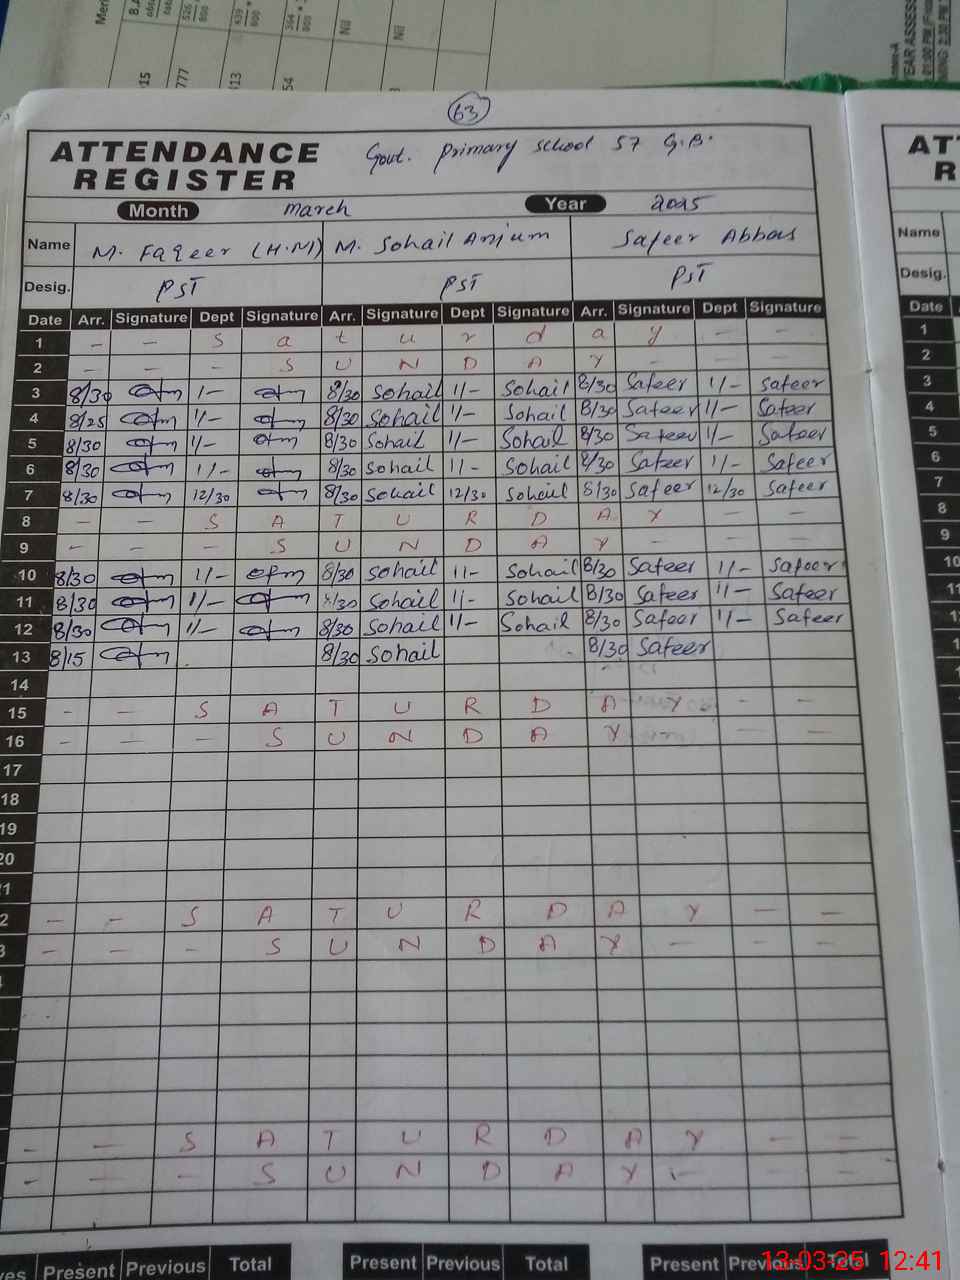 Meri
B.A
15
777
526
800
439
800
13
364
800
54
Nil
Nil
YEAR ASSESS
01:00 PM (F
MING: 2:30 PM
63
ATTENDANCE REGISTER
Govt. Primary School 57 G.B.
Month march Year 2025
Name M. Faqeer (H.M) M. Sohail Anjum Safeer Abbas
Desig. PST PST PST
Date Arr. Signature Dept Signature Arr. Signature Dept Signature Arr. Signature Dept Signature
1 - - S a t u r d a y - -
2 - - - S U N D A Y - - -
3 8/30 1/- 8/30 Sohail 1/- Sohail 8/30 Safeer 1/- Safeer
4 8/25 1/- 8/30 Sohail 1/- Sohail 8/30 Safeer 1/- Safeer
5 8/30 1/- 8/30 Sohail 1/- Sohail 8/30 Safeer 1/- Safeer
6 8/30 1/- 8/30 Sohail 1/- Sohail 8/30 Safeer 1/- Safeer
7 8/30 12/30 8/30 Sohail 12/30 Sohail 8/30 Safeer 12/30 Safeer
8 - - S A T U R D A Y - -
9 - - - S U N D A Y - - -
10 8/30 1/- 8/30 Sohail 1/- Sohail 8/30 Safeer 1/- Safeer
11 8/30 1/- 8/30 Sohail 1/- Sohail 8/30 Safeer 1/- Safeer
12 8/30 1/- 8/30 Sohail 1/- Sohail 8/30 Safeer 1/- Safeer
13 8/15 8/30 Sohail 8/30 Safeer
14
15 - - S A T U R D A Y - -
16 - - - S U N D A Y - -
17
18
19
20
21
2 - - S A T U R D A Y - -
3 - - - S U N D A Y - - -
- - S A T U R D A Y - -
- - - S U N D A Y - - -
Present Previous Total Present Previous Total Present Previous Total
AT
R
Name
Desig.
Date
1
2
3
4
5
6
7
8
9
10
11
1
1
13-03-25 12:41